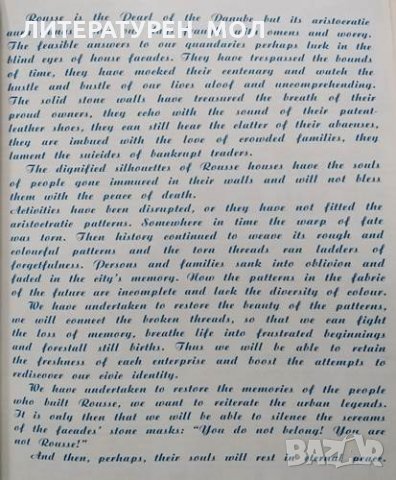 ЛИТЕРАТУРЕН МОЛ
Rousse is the Pearl of the Danube but its aristocratic
omens and worry.
The feasible answers to our quandaries perhaps lurk in the
blind eyes of house facades. They have trespassed the bounds
of time, they have mocked their centenary and watch the
hustle and bustle of our lives aloof and uncomprehending.
The solid stone walls have treasured the breath of their
proud owners, they echo with the sound of their patent-
leather shoes, they can still hear the clatter of their abacuses,
they are imbued with the love of crowded families, they
lament the suicides of bankrupt traders.
The dignified silhouettes of Rousse houses have the souls
of people gone immured in their walls and will not bless
them with the peace of death.
Activities have been disrupted, or they have not fitted the
aristocratic patterns. Somewhere in time the warp of fate
was torn. Then history continued to weave its rough and
colourful patterns and the torn threads ran ladders of
forgetfulness. Persons and families sank into oblivion and
faded in the city's memory. Now the patterns in the fabric
of the future are incomplete and lack the diversity of colour.
We have undertaken to restore the beauty of the patterns,
we will connect the broken threads, so that we can fight
the loss of memory, breathe life into frustrated beginnings
and forestall still births. Thus we will be able to retain
the freshness of each enterprise and boost the attempts to
rediscover our civic identity.
We have undertaken to restore the memories of the people
who built Rousse, we want to reiterate the urban legends.
It is only then that we will be able to silence the screams
of the facades' stone masks: "You do not belong! You are
not Rousse!"
And then, perhaps, their souls will rest in eternal peace.
bazar